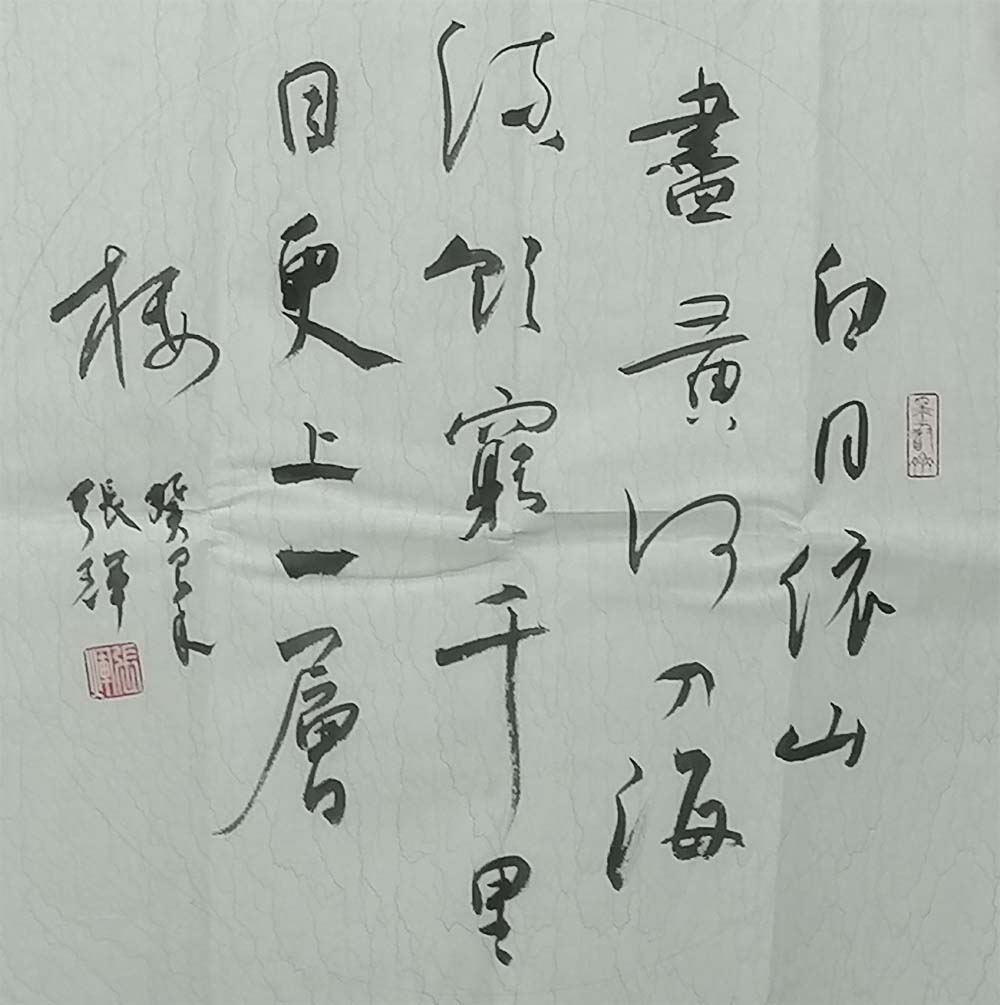 白日依山
盡黃河入海
流欲窮千里
目更上一層
樓
癸卯年
張輝